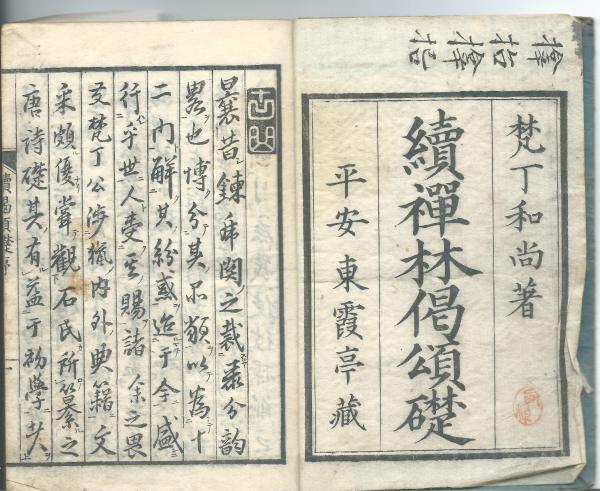 梵丁和尚著
續禪林偈頌礎
平安 東霞亭藏
曩昔鍊師関之裁彙分韵
畧也博分其不類以為十
二門解其紛惑迨于今盛
行乎世人受其賜諸余之畏
友梵丁公渉猟内外典籍文
采頗優嘗観石氏所纂之
唐詩礎其有益于初學
續偈頌礎序
一